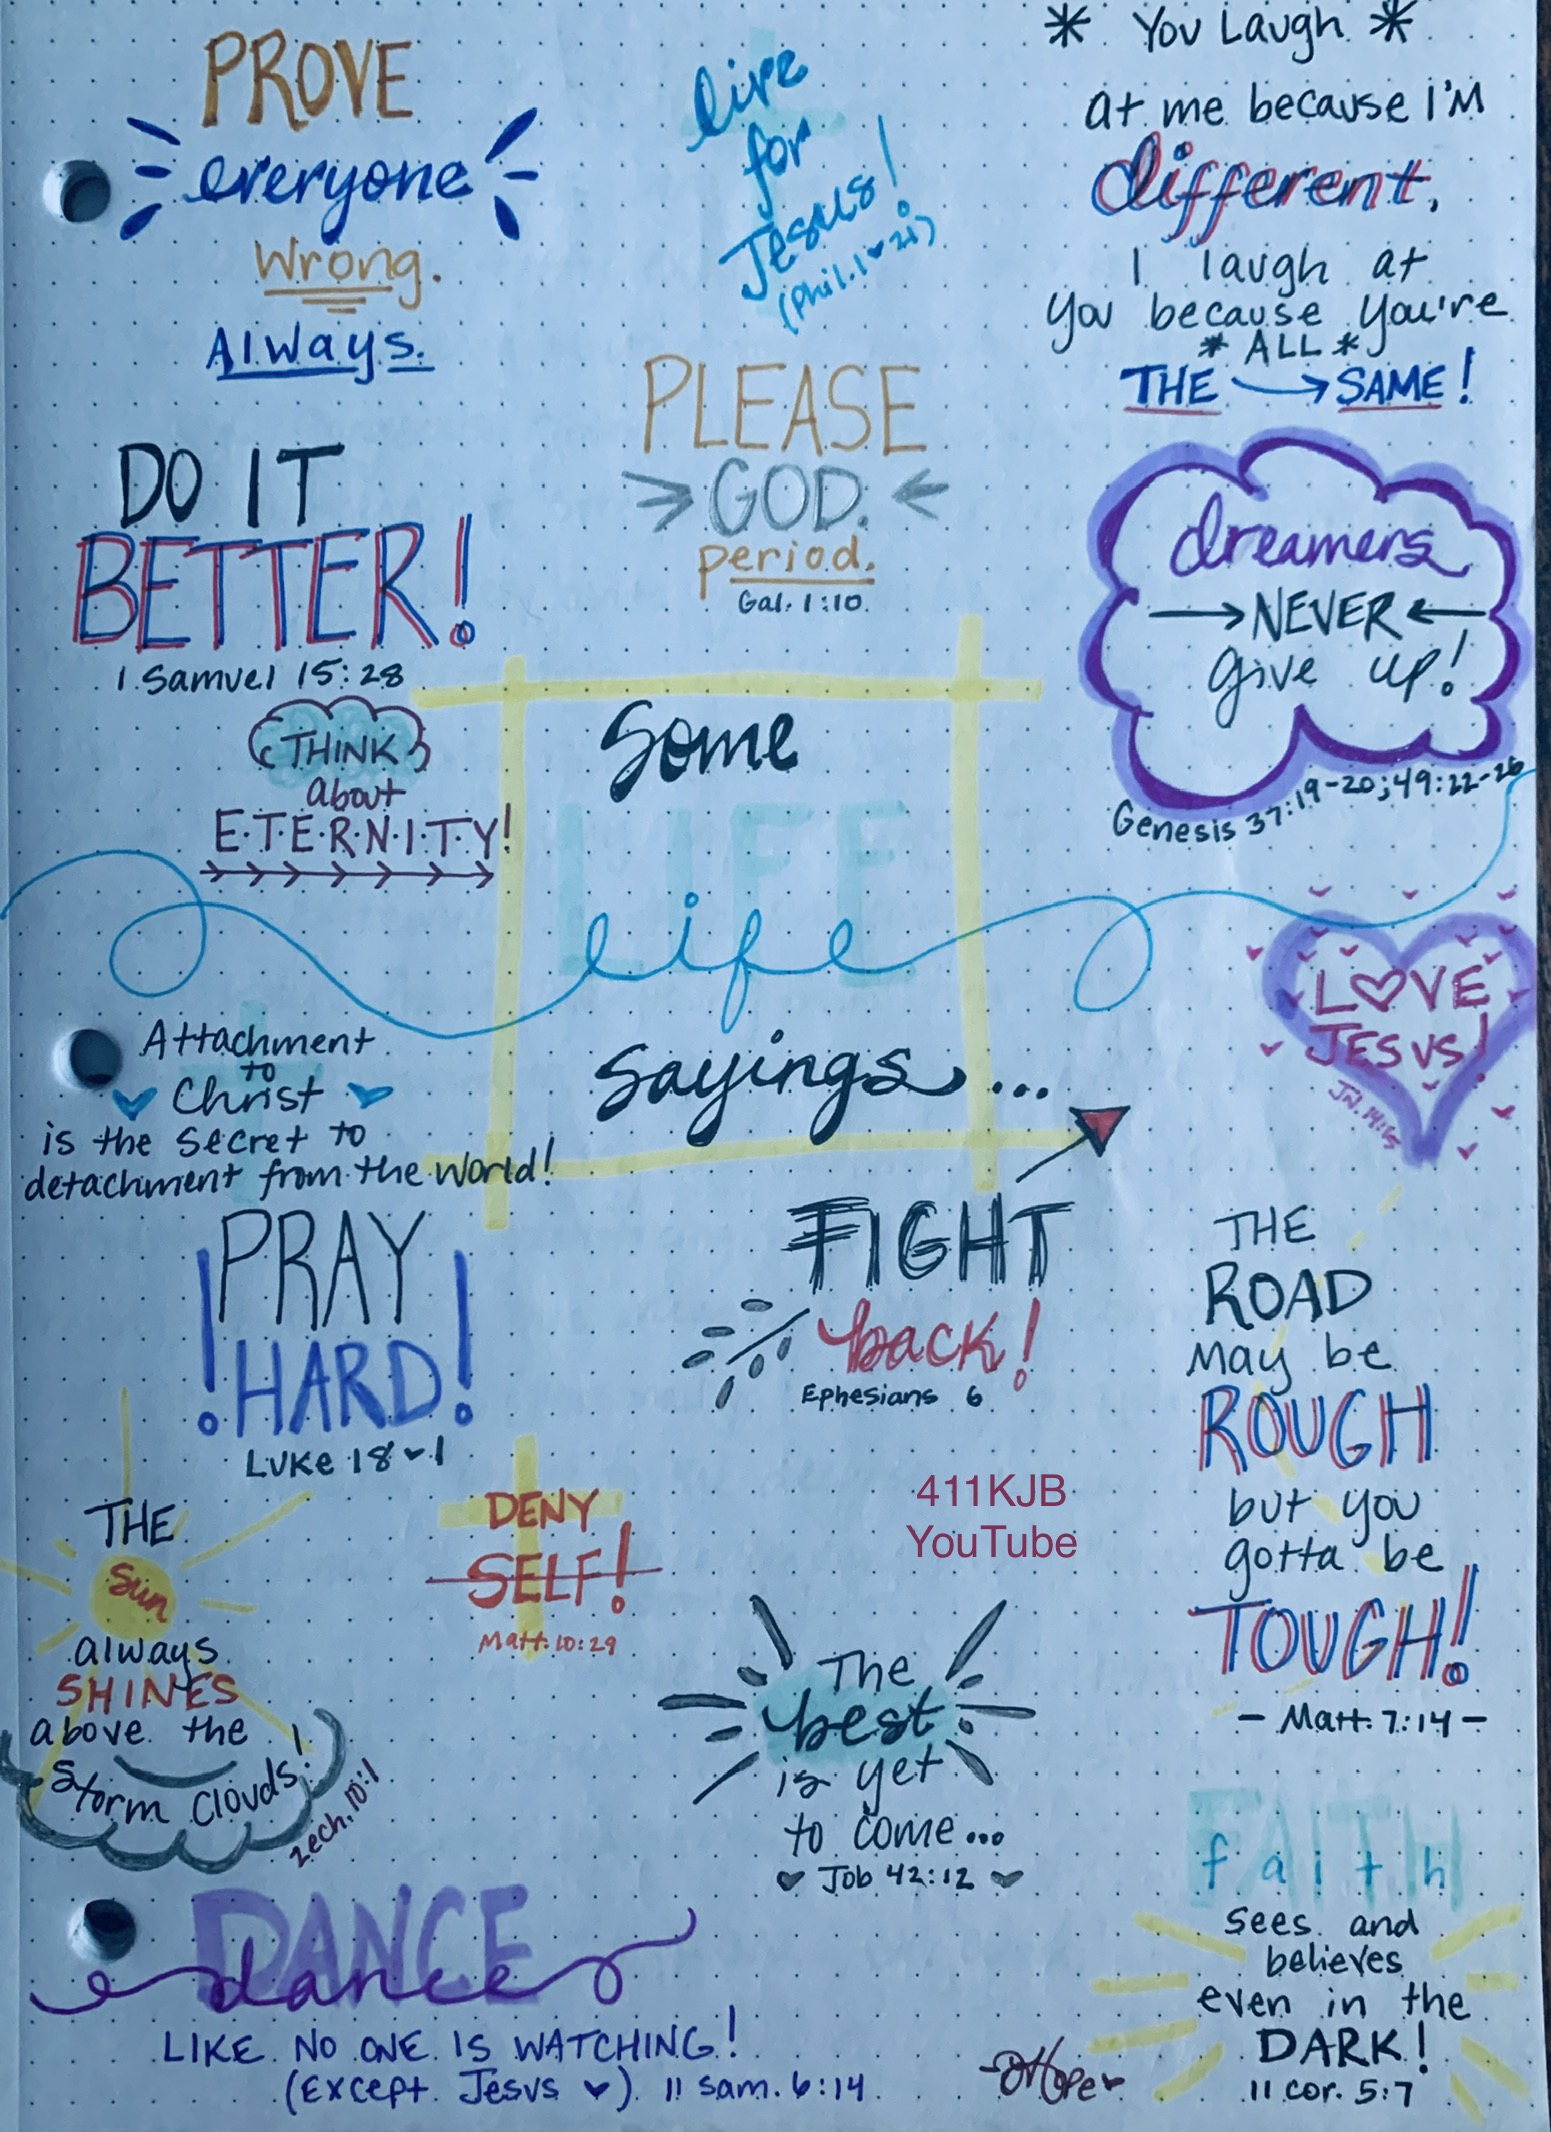 PROVE
everyone
Wrong.
Always.
live
for
Jesus!
(Phil. 1♥21)
* You Laugh *
at me because I'M
different.
I laugh at
you because you're
* ALL *
THE → SAME!
DO IT
BETTER!
1 Samuel 15:28
PLEASE
> GOD. <
period.
Gal. 1:10
dreamers
→ NEVER ←
give up!
Genesis 37:19-20; 49:22-26
THINK
about
E·T·E·R·N·I·T·Y!
Some
LIFE
life
sayings...
LOVE
JESUS!
JN. 14:15
Attachment
to
♥ Christ ♥
is the secret to
detachment from the world!
PRAY
!HARD!
Luke 18♥1
FIGHT
back!
Ephesians 6
THE
ROAD
may be
ROUGH
but you
gotta be
TOUGH!
- Matt. 7:14 -
411KJB
YouTube
THE
Sun
always
SHINES
above the
Storm Clouds!
Zech. 10:1
DENY
SELF!
Matt. 10:29
The
best
is yet
to come...
♥ Job 42:12 ♥
FAITH
faith
sees and
believes
even in the
DARK!
II Cor. 5:7
DANCE
dance
LIKE NO ONE IS WATCHING!
(Except Jesus ♥) II Sam. 6:14
-DHope♥